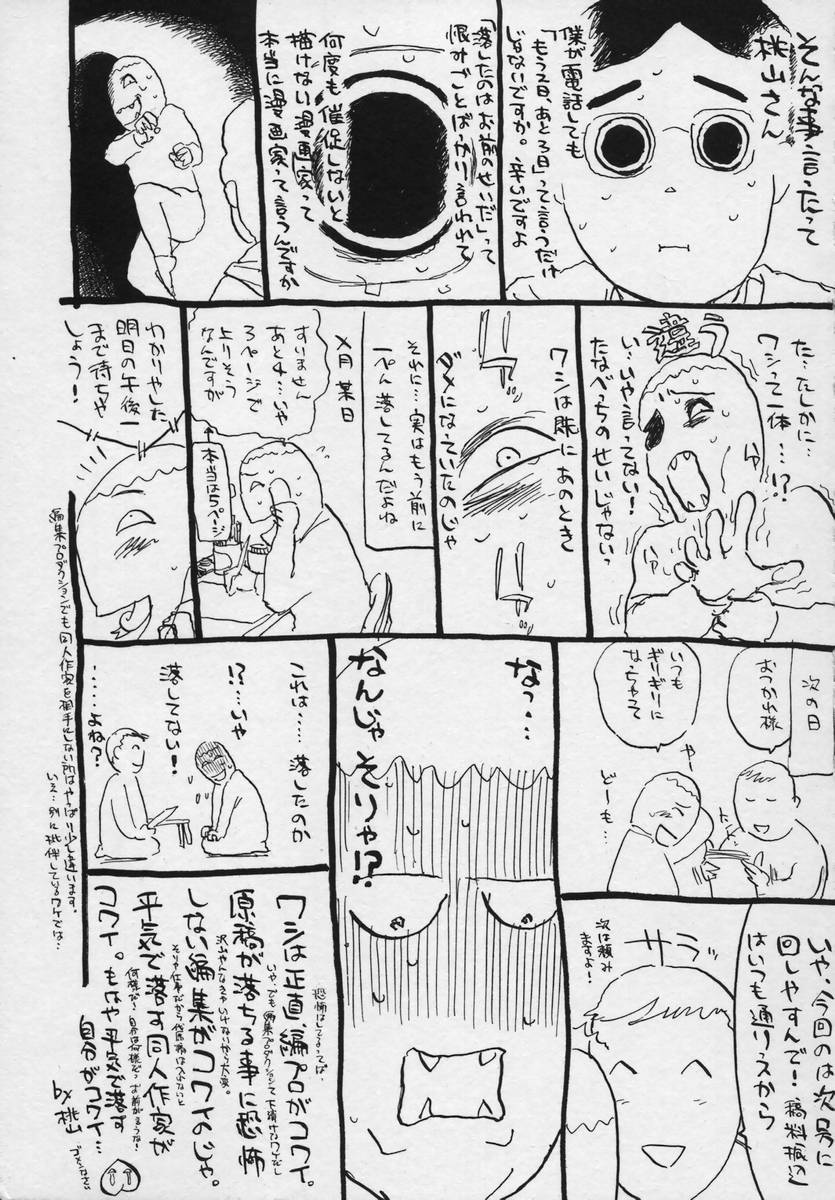 そんな事言ったって
桃山さん
僕が電話しても
「もう2日、あと3日」って言うだけ
じゃないですか。辛いですよ
「落したのはお前のせいだ」って
恨みごとばっかり言われて
何度も催促しないと
描けない漫画家って
本当に漫画家って言うんですか
違う
た…たしかに…
ワシって一体…!?
い…いや言ってない!
たなべっちのせいじゃないっ
ワシは既にあのとき
ダメになっていたのじゃ
それに…実はもう前に
一ぺん落してるんだよね
×月某日
すいません
あと4…いや
3ページで
上りそう
なんですが
←本当は5ページ
わかりやした
明日の午後一
まで待ちや
しょう!
次の日
おつかれ様
いつも
ギリギリに
なっちゃって
やー
どーも…
いや、今回のは次号に
回しやすんで!稿料振込
はいつも通りっスから
次は頼み
ますよ!
サラッ
なっ…
なんじゃ そりゃ!?
これは……落したのか
!?……いや
落してない!
……よね?
編集プロダクションでも同人作家を相手にしない所はやっぱり少し違います。
いえ…別に批判しているワケでは…
ワシは正直、編プロがコワイ。
原稿が落ちる事に恐怖
しない編集がコワイのじゃ。
平気で落す同人作家が
コワイ。もはや平気で落す
自分がコワイ…
by 桃山
ゴメンなさい